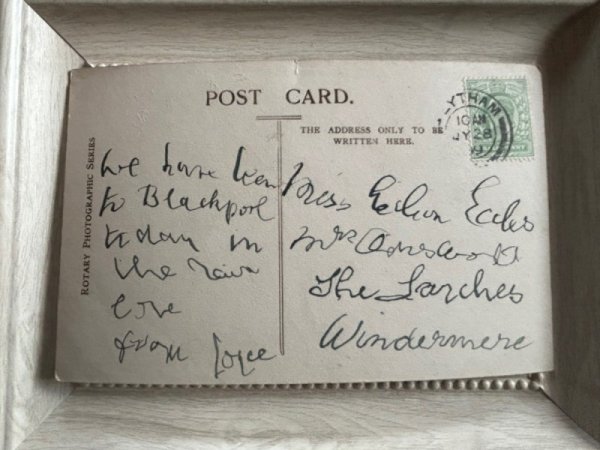 POST CARD.
THE ADDRESS ONLY TO BE
WRITTEN HERE.
ROTARY PHOTOGRAPHIC SERIES
LYTHAM
10 AM
28
we have been
to Blackpool
today in
the rain
love
from Joyce
Miss Eccles
Mrs
The Larches
Windermere